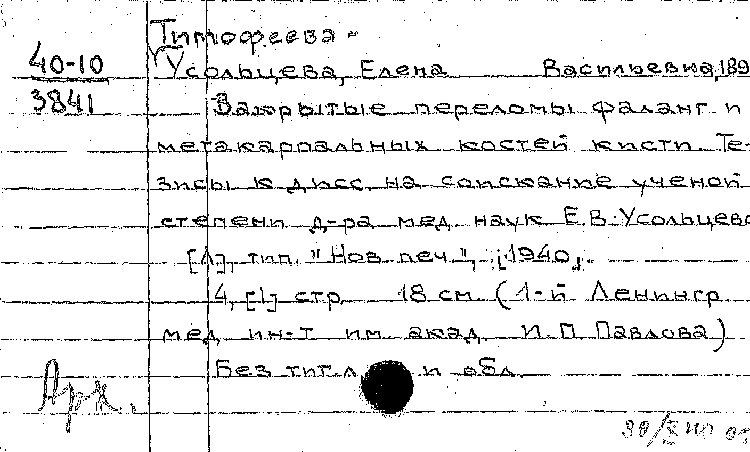 Тимофеева-
40-10
Усольцева, Елена Васильевна, 189
3841
Закрытые переломы фаланг и
метакарпальных костей кисти. Те-
зисы к дисс. на соискание ученой
степени д-ра мед. наук Е.В. Усольцево
[Л], тип. "Нов. печ.", [1940].
4, [1] стр. 18 см. (1-й Ленингр.
мед. ин-т им. акад. И.П. Павлова)
Без тит. л. и обл.
Арх.